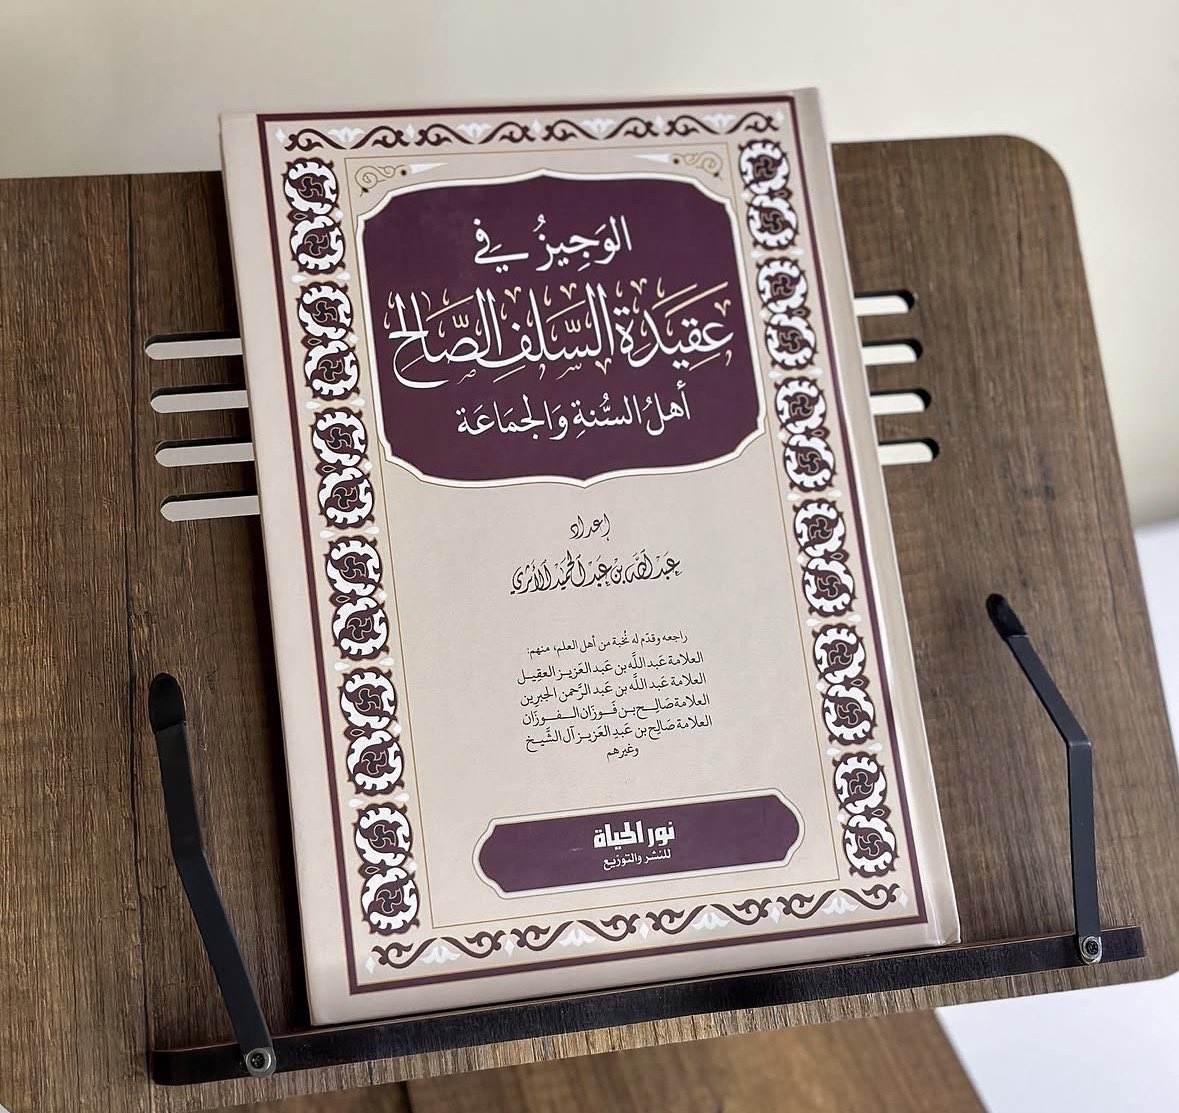 الوَجِيزُ فِي
عَقِيَدَة السَّلَفِ الصَّالِح
أهلُ السُّنةِ وَالجمَاعَة
إعداد
عَبْد اللَّه بْن عَبْد الحَمِيْد الأَثَرِي
راجعه وقدّم له نُخبة من أهل العلم، منهم:
العلامة عَبد اللَّه بن عَبد العَزيز العقيل
العلامة عَبد اللَّه بن عَبد الرَّحمن الجبرين
العلامة صَالِـح بـن فَـوزَان الـفـوزَان
العلامة صَالِح بن عَبدِ العَزيز آل الشَّيخ
وغيرهم
نور الحياة
للنشر والتوزيع